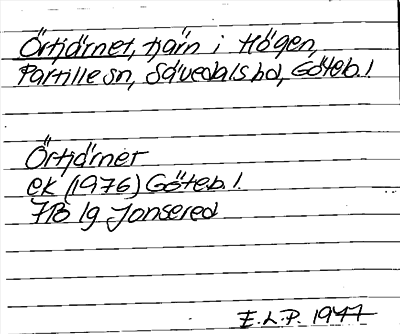 Örtjärnet, tjärn i Högen,
Partille sn, Sävedals hd, Göteb. l
Örtjärnet
ek (1976) Göteb. l.
7B 1g Jonsered
E.L.P. 1977